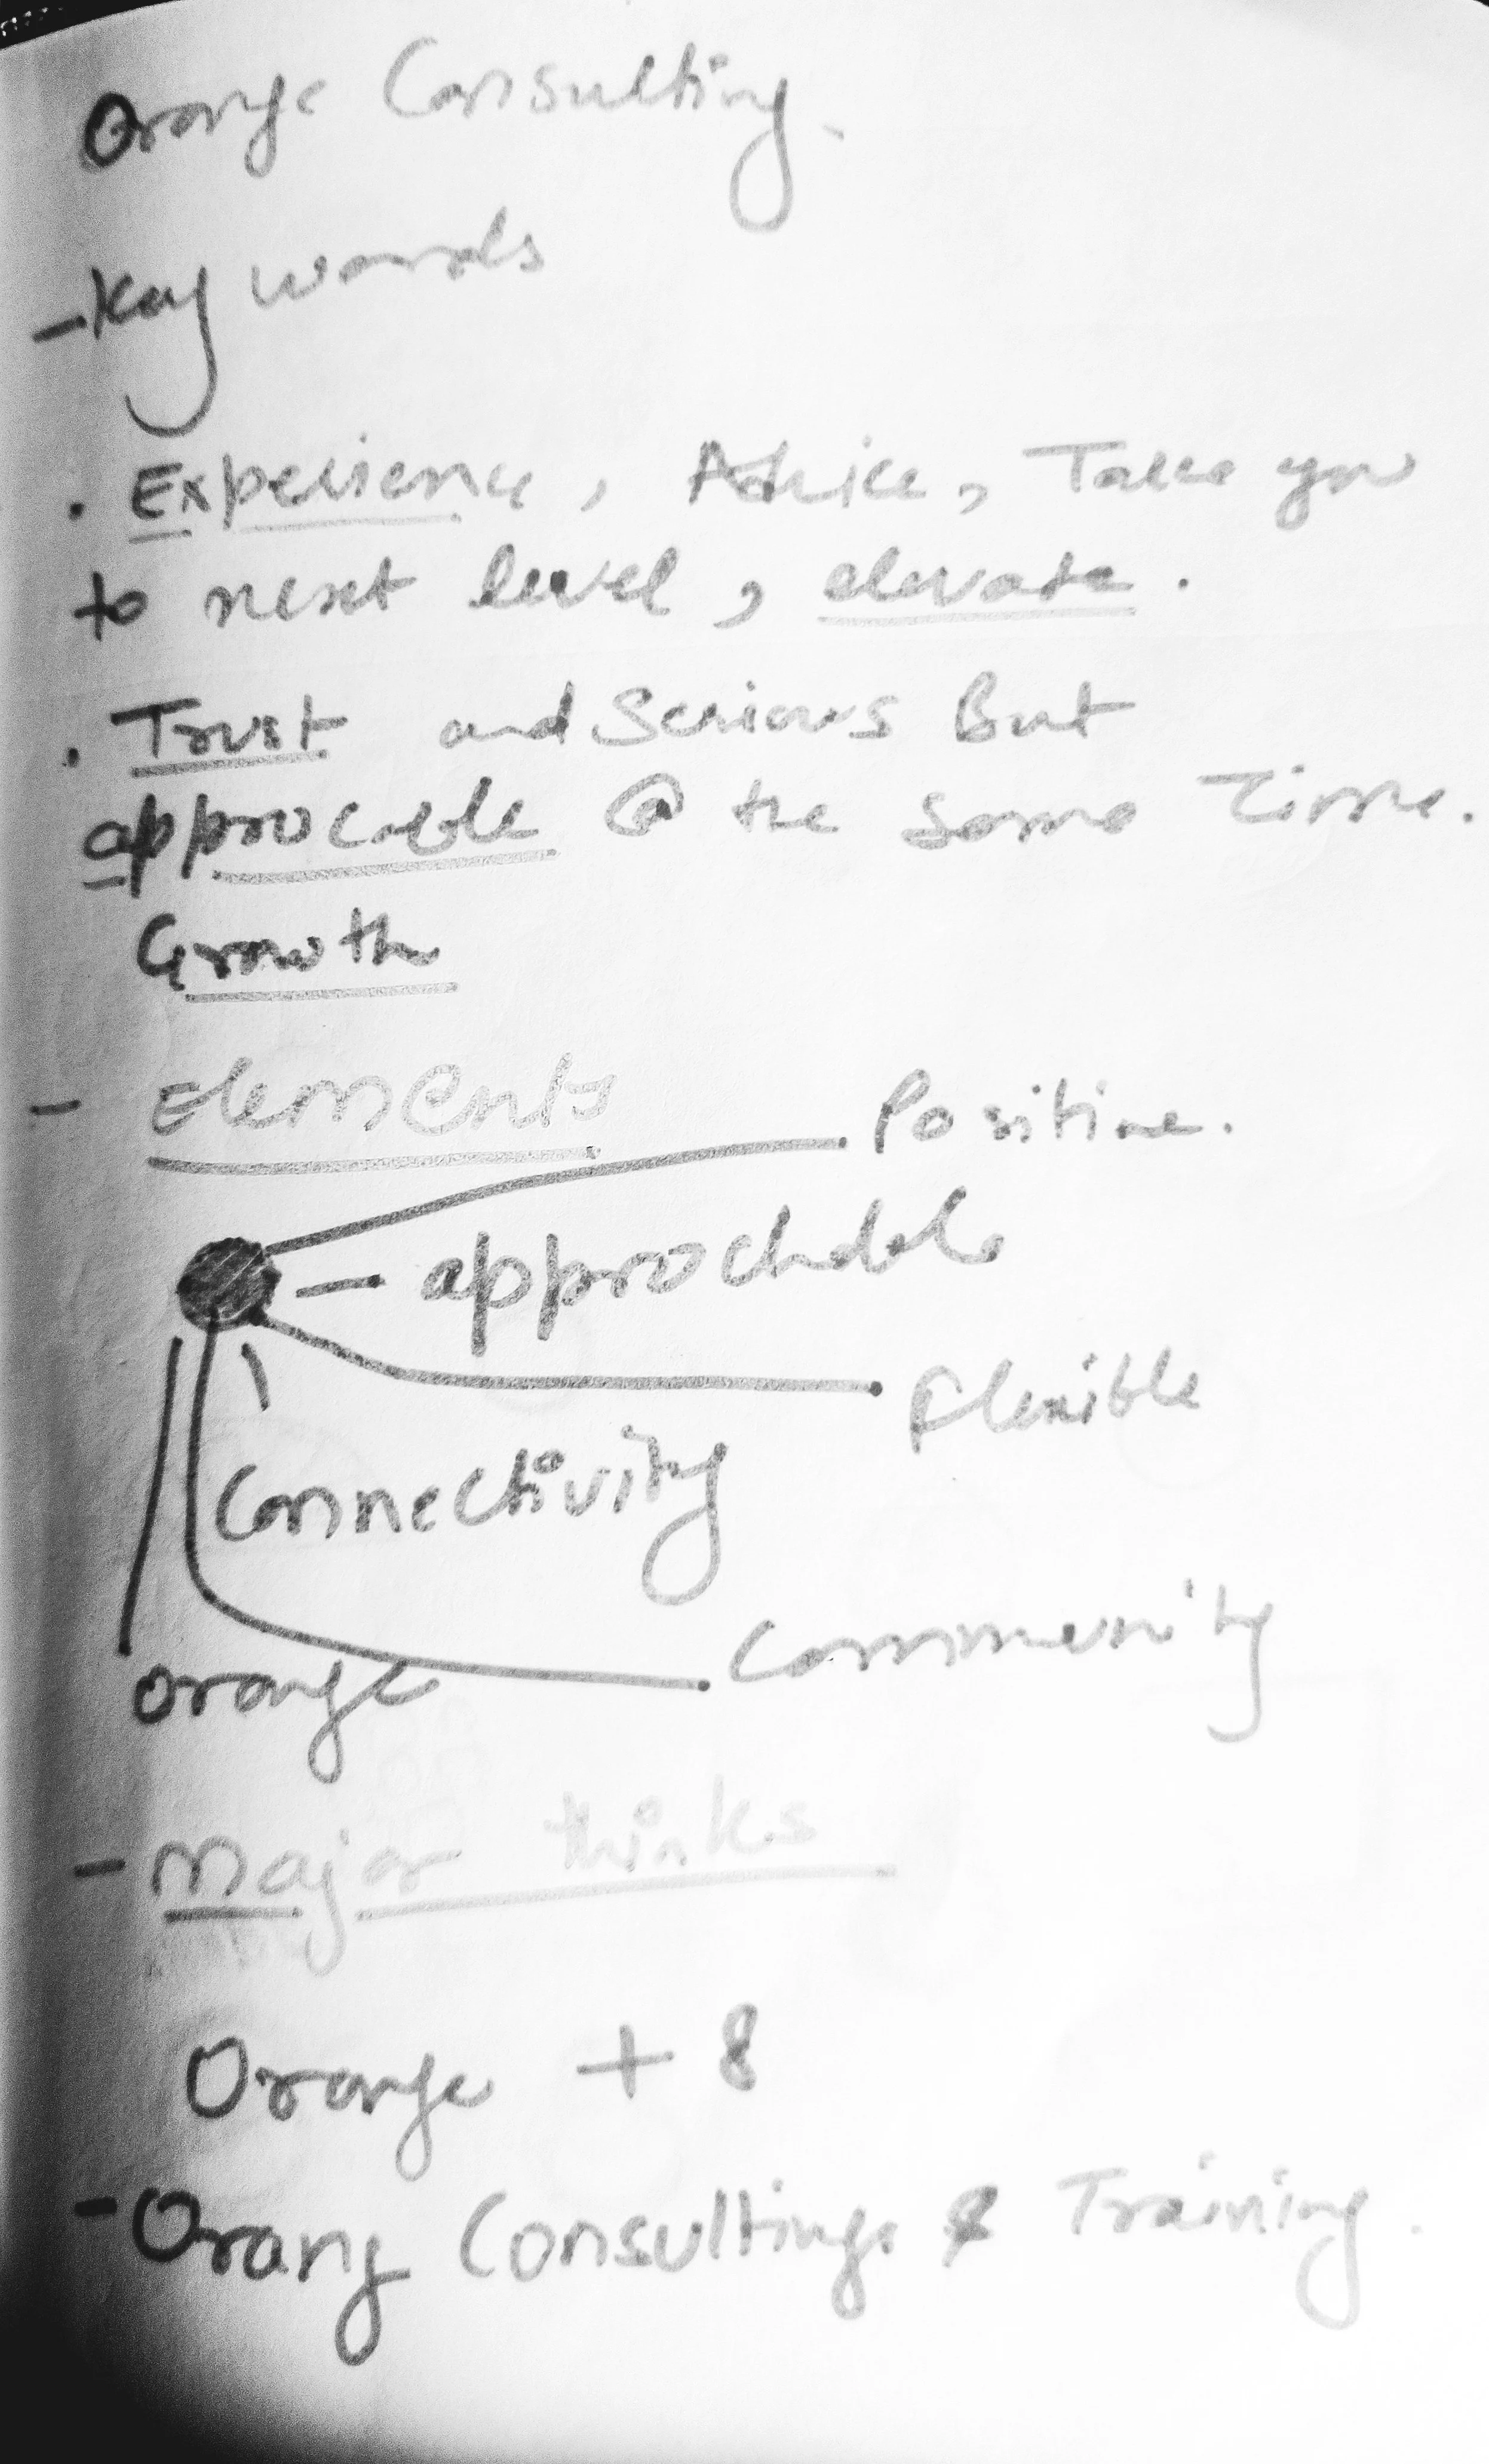 Orange Consulting.
- Key words
. Experience, Advice, Take you
to next level, elevate.
. Trust and Serious But
approcable @ the same Time.
Growth
- Elements
Positive.
- approchable
Flexible
Connectivity
Community
Orange
- Major thinks
Orange + 8
- Orang Consulting & Training.